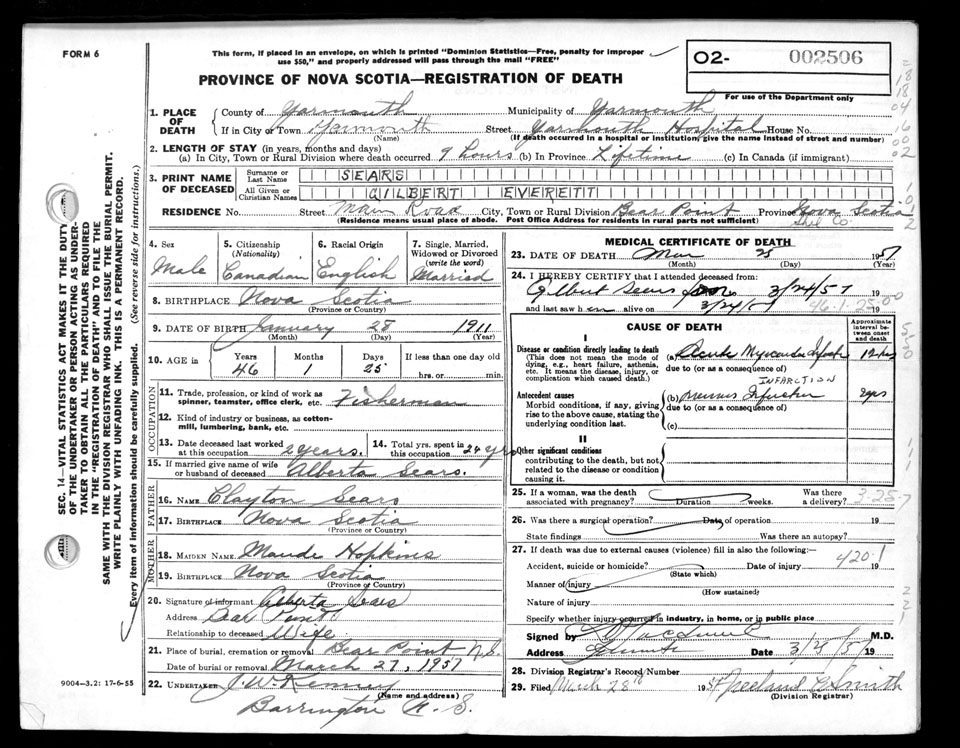 FORM 6
This form, if placed in an envelope, on which is printed "Dominion Statistics—Free, penalty for improper
use $50," and properly addressed will pass through the mail "FREE"
O2- 002506
For use of the Department only
PROVINCE OF NOVA SCOTIA—REGISTRATION OF DEATH
1. PLACE OF DEATH County of Yarmouth Municipality of Yarmouth
If in City or Town Yarmouth (Name) Street Yarmouth Hospital House No.
(If death occurred in a hospital or institution, give the name instead of street and number)
2. LENGTH OF STAY (in years, months and days)
(a) In City, Town or Rural Division where death occurred 9 hours (b) In Province Lifetime (c) In Canada (if immigrant)
3. PRINT NAME OF DECEASED
Surname or Last Name SEARS
All Given or Christian Names GILBERT EVERETT
RESIDENCE No. Street Main Road City, Town or Rural Division Bear Point Province Nova Scotia
(Residence means usual place of abode. Post Office Address for residents in rural parts not sufficient) Shel Co
4. Sex Male
5. Citizenship (Nationality) Canadian
6. Racial Origin English
7. Single, Married, Widowed or Divorced (write the word) Married
8. BIRTHPLACE Nova Scotia
(Province or Country)
9. DATE OF BIRTH January 28 1911
(Month) (Day) (Year)
10. AGE in Years 46 Months 1 Days 25 If less than one day old hrs. or min.
OCCUPATION
11. Trade, profession, or kind of work as spinner, teamster, office clerk, etc. Fisherman
12. Kind of industry or business, as cotton-mill, lumbering, bank, etc.
13. Date deceased last worked at this occupation 2 years.
14. Total yrs. spent in this occupation 24 yrs
15. If married give name of wife or husband of deceased Alberta Sears.
FATHER
16. NAME Clayton Sears
17. BIRTHPLACE Nova Scotia
(Province or Country)
MOTHER
18. MAIDEN NAME Maude Hopkins
19. BIRTHPLACE Nova Scotia
(Province or Country)
20. Signature of informant Alberta Sears
Address Bear Point
Relationship to deceased Wife
21. Place of burial, cremation or removal Bear Point N.S.
Date of burial or removal March 27, 1957
22. UNDERTAKER J. W. Kenney
(Name and address)
Barrington N. S.
9004—3.2: 17-6-55
MEDICAL CERTIFICATE OF DEATH
23. DATE OF DEATH Mar 25 1957
(Month) (Day) (Year)
24. I HEREBY CERTIFY that I attended deceased from:
Gilbert Sears 3/24/57 19
and last saw h alive on 3/24/57 19
46-1-25-00
CAUSE OF DEATH
Approximate interval between onset and death
I
Disease or condition directly leading to death
(This does not mean the mode of dying, e.g., heart failure, asthenia, etc. It means the disease, injury, or complication which caused death.)
(a) Acute Myocardial Infarct 12 hrs
due to (or as a consequence of)
INFARCTION
Antecedent causes
Morbid conditions, if any, giving rise to the above cause, stating the underlying condition last.
(b) Previous Infarction 2 yrs
due to (or as a consequence of)
(c)
II
Other significant conditions
contributing to the death, but not related to the disease or condition causing it.
25. If a woman, was the death associated with pregnancy? Duration weeks. Was there a delivery?
3-25-7
26. Was there a surgical operation? Date of operation 19
State findings Was there an autopsy?
27. If death was due to external causes (violence) fill in also the following:—
Accident, suicide or homicide? Date of injury 19
(State which)
420.1
Manner of injury
(How sustained)
Nature of injury
Specify whether injury occurred in industry, in home, or in public place
Signed by M.D.
Address Date 19
28. Division Registrar's Record Number
29. Filed March 28th 1957 Smith
(Division Registrar)
SEC. 14—VITAL STATISTICS ACT MAKES IT THE DUTY
OF THE UNDERTAKER OR PERSON ACTING AS UNDER-
TAKER TO OBTAIN ALL THE PARTICULARS REQUIRED
IN THE "REGISTRATION OF DEATH" AND TO FILE THE
SAME WITH THE DIVISION REGISTRAR WHO SHALL ISSUE THE BURIAL PERMIT.
WRITE PLAINLY WITH UNFADING INK. THIS IS A PERMANENT RECORD.
Every item of information should be carefully supplied. (See reverse side for instructions.)